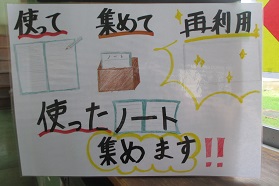 使って 集めて 再利用
使ったノート
集めます!!